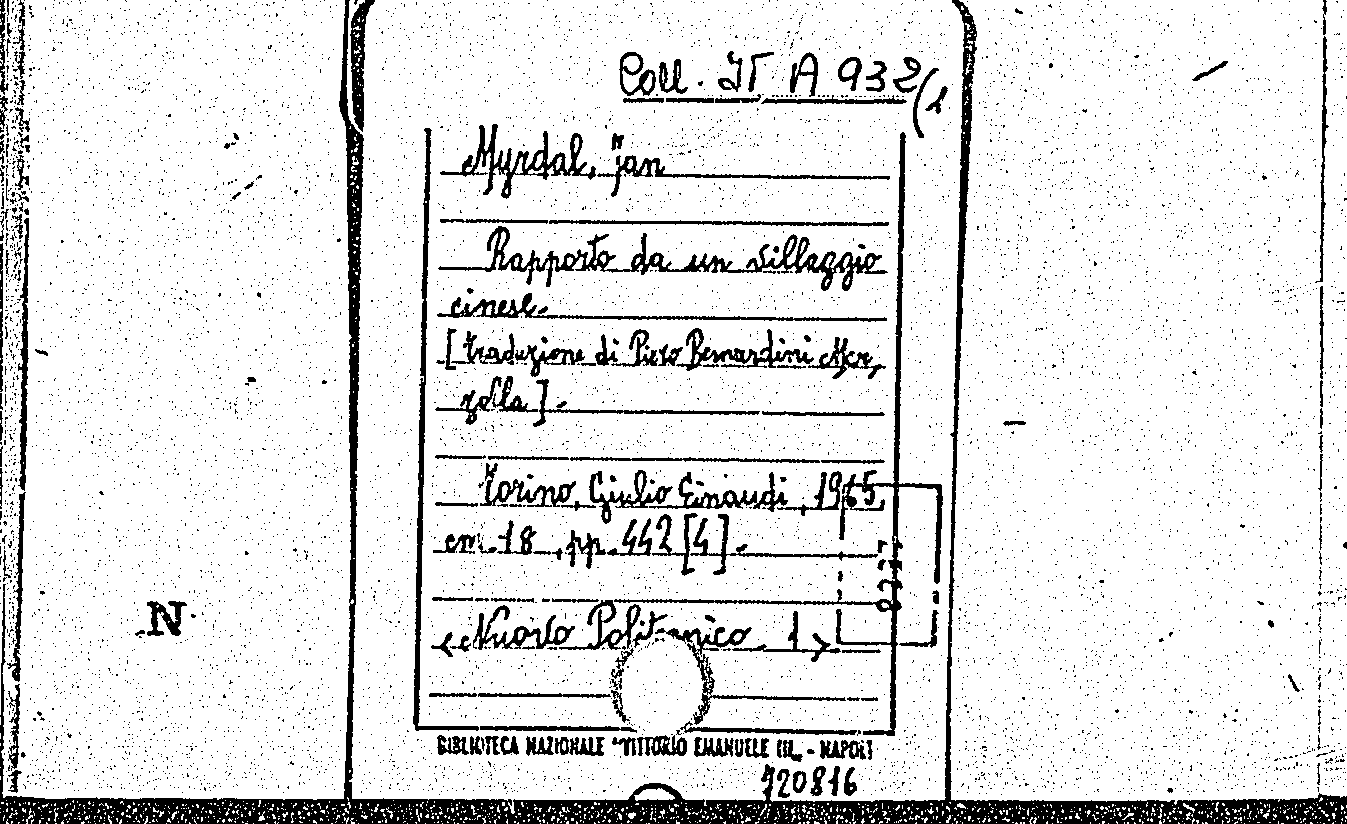 Coll. IT A 932(1
Myrdal, Jan
Rapporto da un villaggio
cinese.
[traduzione di Piero Bernardini Mar,
zolla].
Torino, Giulio Einaudi, 1965,
cm. 18, pp. 442 [4].
<Nuovo Politecnico, 1>
N
BIBLIOTECA NAZIONALE "VITTORIO EMANUELE III" - NAPOLI
720816